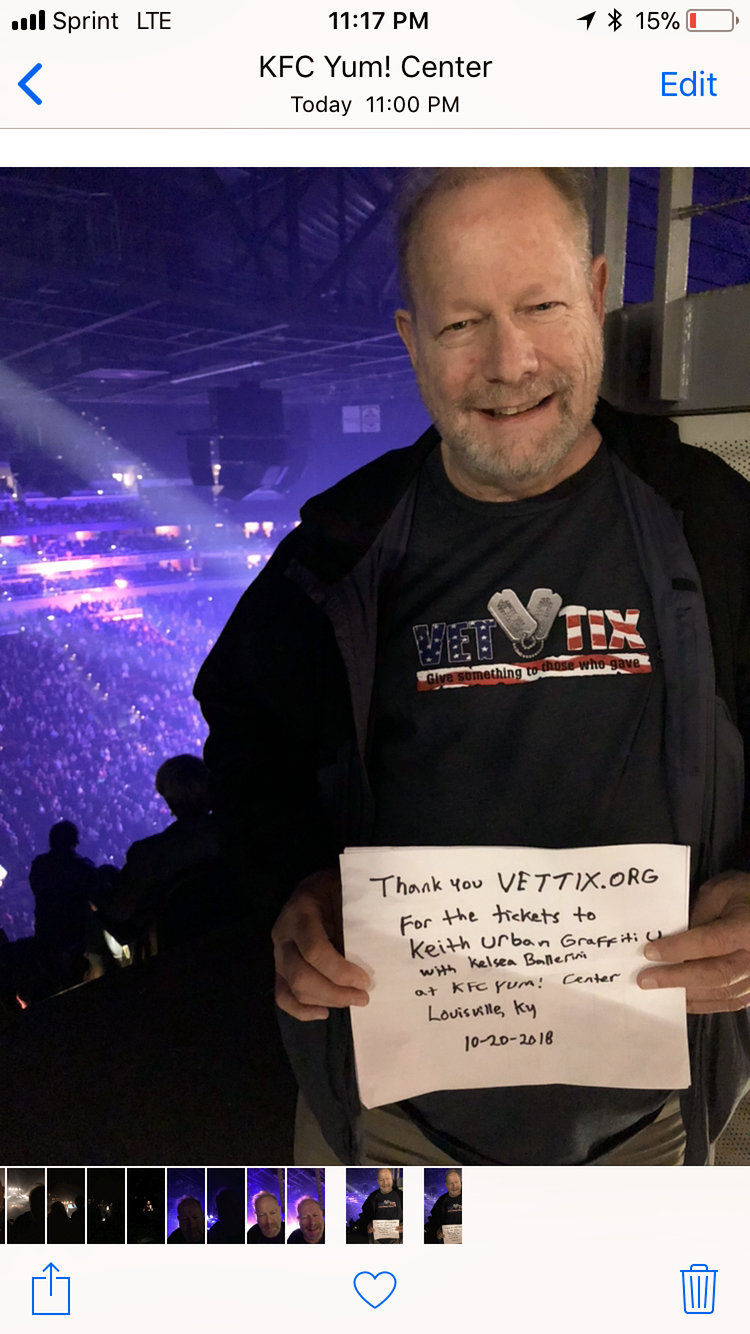 Sprint LTE 11:17 PM 15%
KFC Yum! Center
Today 11:00 PM
Edit
VET TIX
Give something to those who gave
Thank you VETTIX.ORG
For the tickets to
Keith Urban Graffiti U
with Kelsea Ballerini
at KFC Yum! Center
Louisville, Ky
10-20-2018